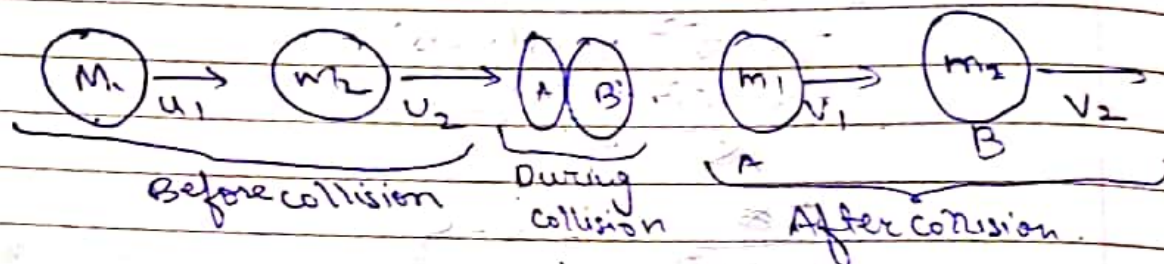 M₁ m₂ A B m₁ m₂
u₁ U₂ V₁ V₂
A B
Before collision During collision After collision.